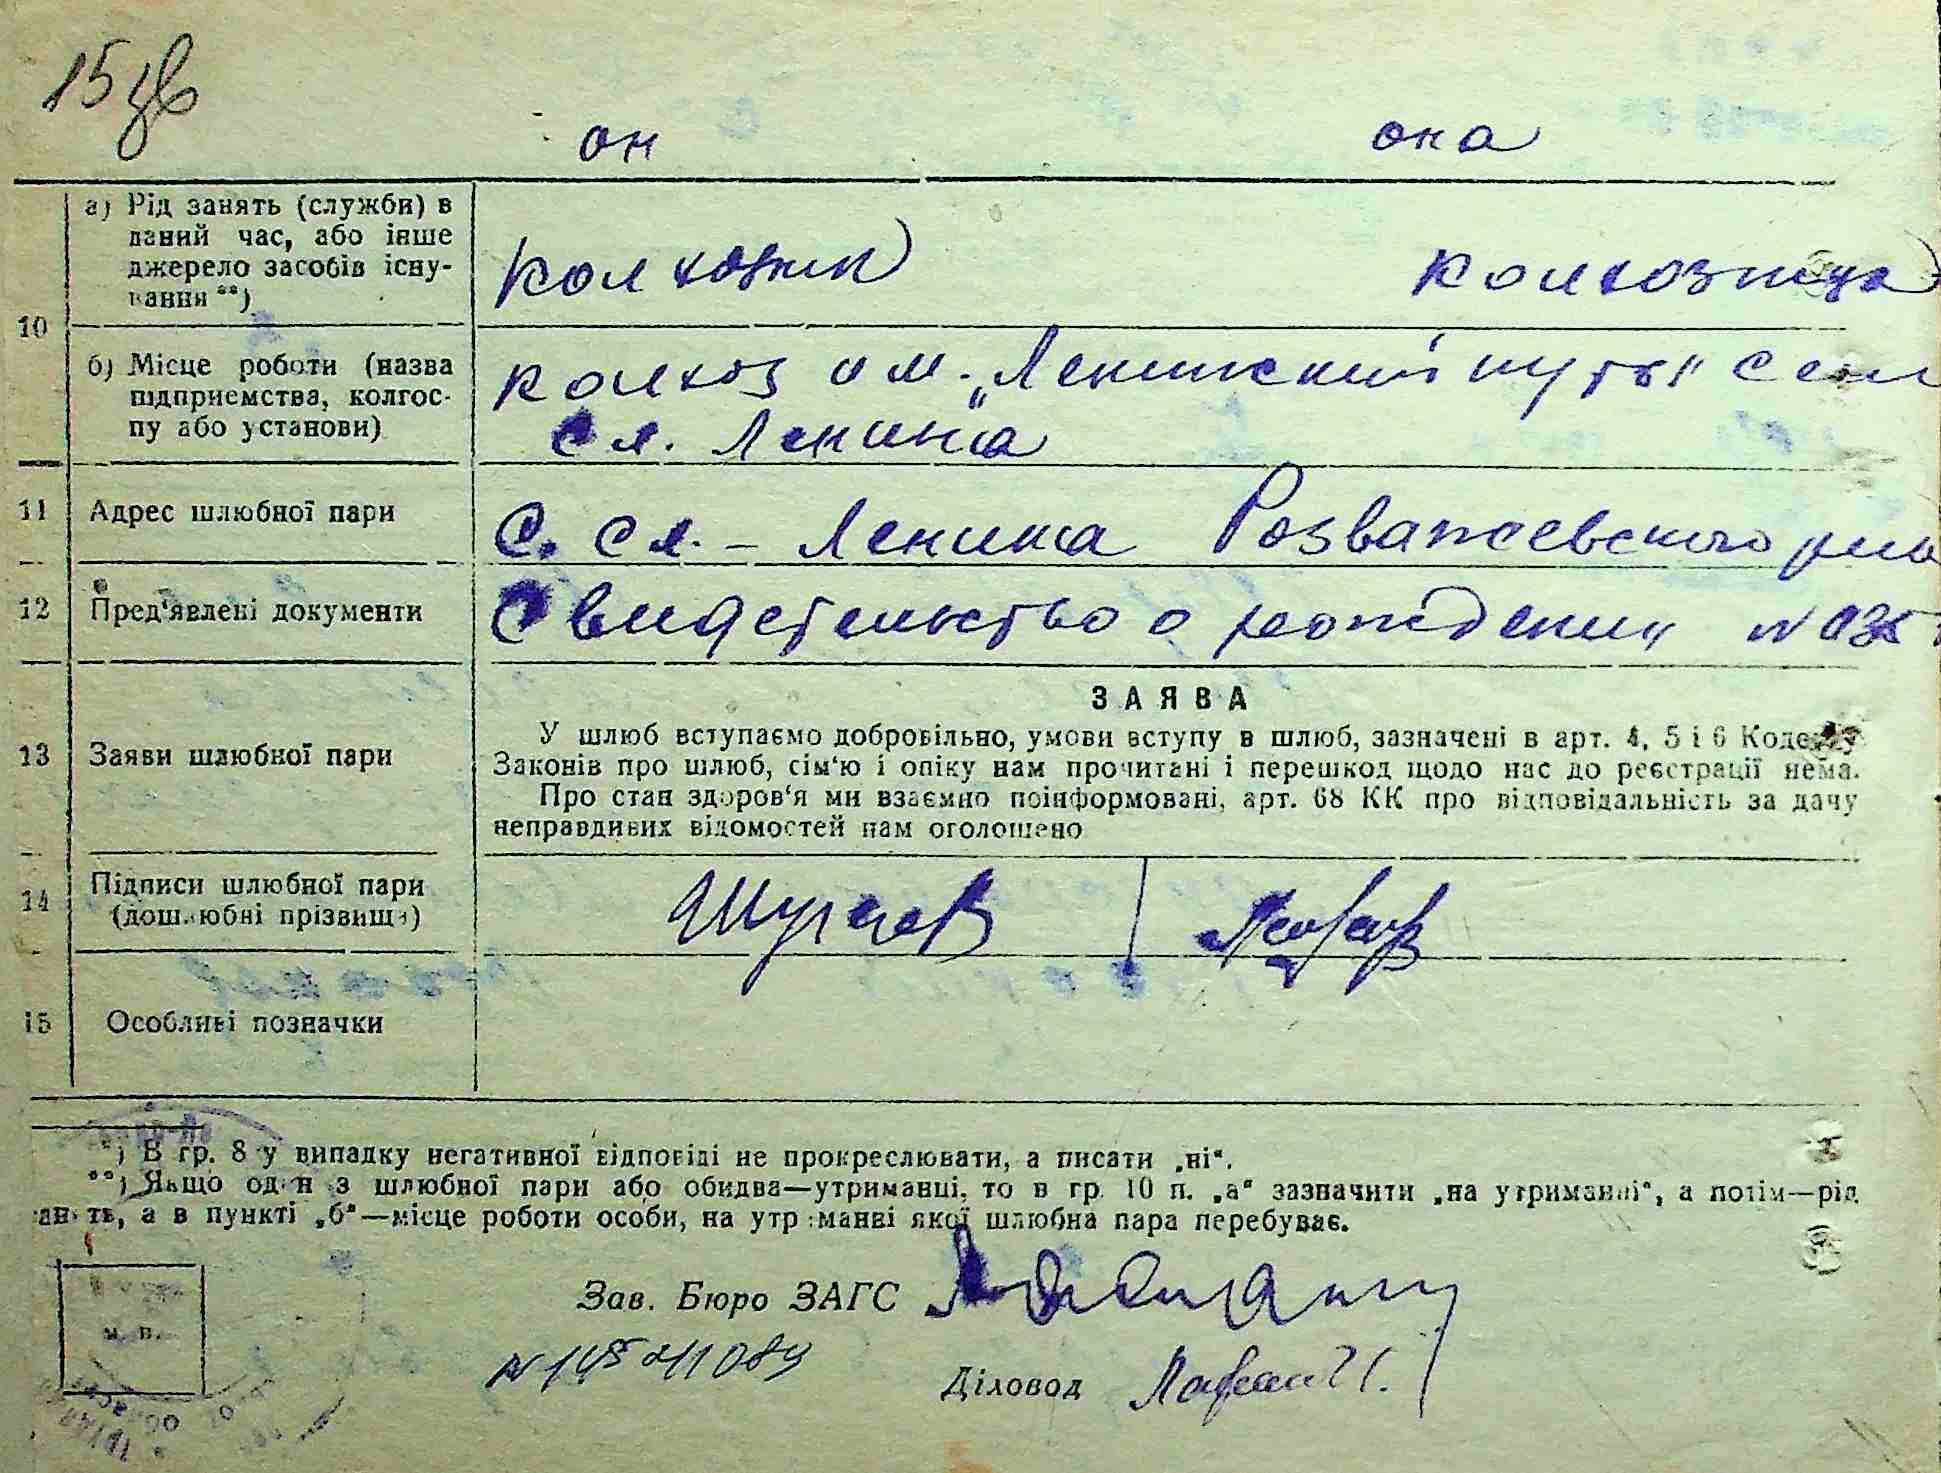 15
он она
10 а) Рід занять (служби) в даний час, або інше джерело засобів існування **) колхозник колхозница
б) Місце роботи (назва підприємства, колгоспу або установи) колхоз им. „Ленинский путь"
сл. Ленина
11 Адрес шлюбної пари с. сл. - Ленина Розважевского
12 Пред'явлені документи Свидетельство о рождении №
ЗАЯВА
У шлюб вступаємо добровільно, умови вступу в шлюб, зазначені в арт. 4, 5 і 6 Кодексу
13 Заяви шлюбної пари Законів про шлюб, сім'ю і опіку нам прочитані і перешкод щодо нас до реєстрації нема.
Про стан здоров'я ми взаємно поінформовані, арт. 68 КК про відповідальність за дачу
неправдивих відомостей нам оголошено
14 Підписи шлюбної пари
(дошлюбні прізвища)
15 Особливі позначки
*) В гр. 8 у випадку негативної відповіді не прокреслювати, а писати „ні".
**) Якщо один з шлюбної пари або обидва—утриманці, то в гр. 10 п. „а" зазначити „на утриманні", а потім—рід
занять, а в пункті „б"—місце роботи особи, на утриманні якої шлюбна пара перебуває.
Зав. Бюро ЗАГС
м. п.
Діловод